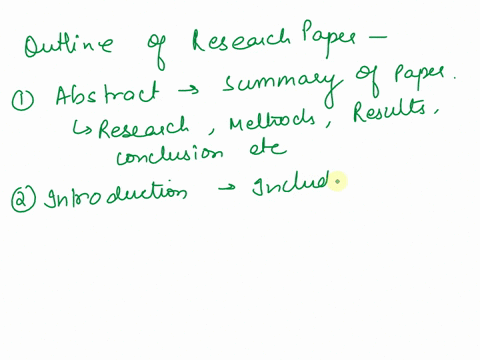 Outline of Research Paper —
① Abstract → Summary of Paper.
↳ Research, Methods, Results,
conclusion etc
② Introduction → Includ